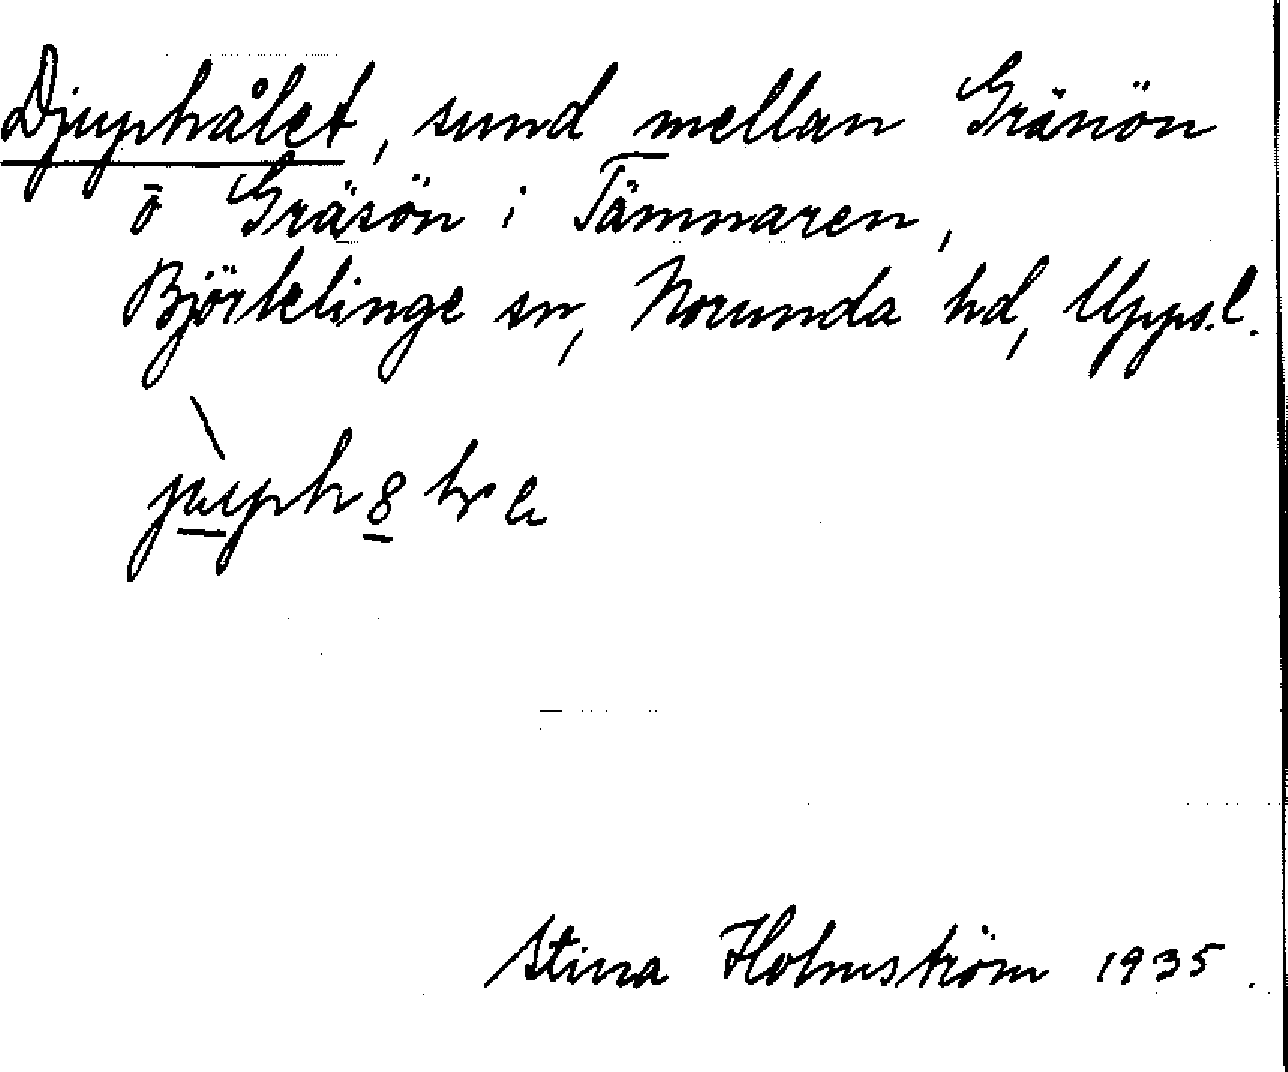 Djuphålet, sund mellan Gräsön
o Gräsön i Tämnaren,
Björklinge sn, Norunda hd, Uppsl.
Stina Holmström 1935.